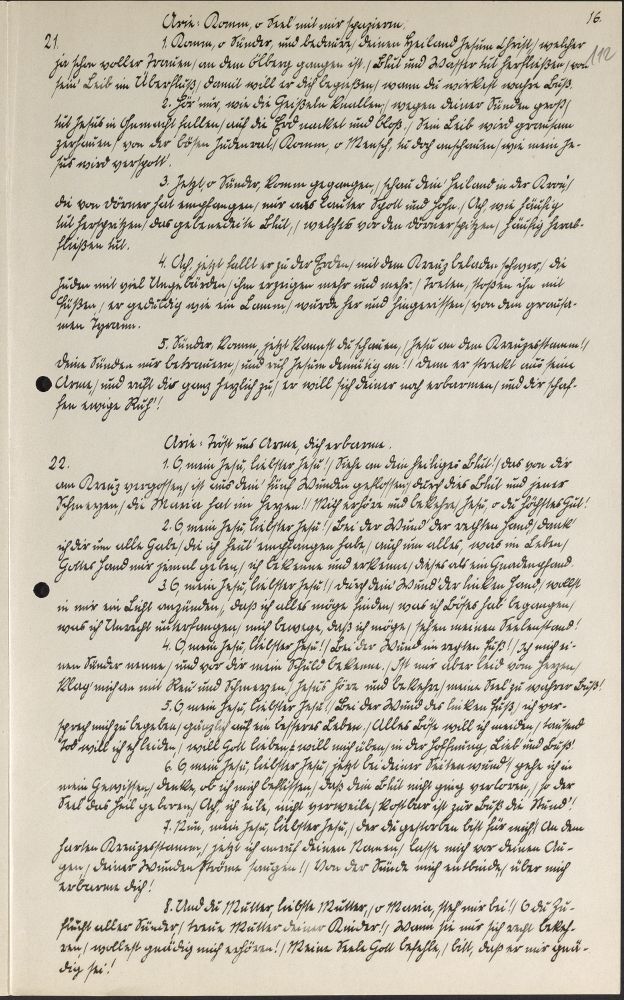 Arie: Komm, o Seel' mit mir spazieren. 16.
21. 1. Komm, o Sünder, und bedaure / deinen Heiland Jesum Christ, / welcher 112
ja schon voller Trauern / an dem Ölberg gangen ist. / Blut und Wasser tut herfließen / von
sein' Leib im Überfluß, / damit will er dich begießen / wann du wirkest wahre Buß.
2. Hör' nur, wie die Geißeln knallen / wegen deiner Sünden groß, /
tut Jesus in Ohnmacht fallen / auf die Erd nacket und bloß. / Sein Leib wird grausam
zerhauen / von der bösen Judenrat. / Komm, o Mensch, tu doch anschauen / wie mein Je-
sus wird verspott'.
3. Jetzt, o Sünder, komm gegangen, / schau dein' Heiland in der Kron, /
die von Dörner hat empfangen, / nur aus lauter Spott und Hohn. / Ach, wie häufig
tut herspritzen / das gebenedeite Blut, / welches von den Dörnerspitzen / häufig herab-
fließen tut.
4. Ach, jetzt fallt er zu der Erden / mit dem Kreuz beladen schwer, / die
Juden mit viel Ungebärden / ihm erzeigen mehr und mehr. / Treten, stoßen ihn mit
Füßen, / er geduldig wie ein Lamm, / wurde her und hingerissen / von dem grausa-
men Tyrann.
5. Sünder, komm, jetzt kannst du schauen, / Jesu an dem Kreuzesstamm! /
Deine Sünden nur betrauern, / und ruf Jesum demütig an! / Denn er streckt aus seine
Arme, / und ruft dir ganz herzlich zu, / er will sich deiner noch erbarmen / und dir schaf-
fen ewige Ruh'!
Arie: Tröst uns Arme, dich erbarme.
22. 1. O, mein Jesu, liebster Jesu! / Siehe an dein heiliges Blut! / das von dir
am Kreuz vergossen, / ist aus dein' fünf Wunden geflossen, / durch dies Blut und jener
Schmerzen, / die Maria hat im Herzen! / Mich erhöre und bekehre, / Jesu, o du höchstes Gut!
2. O mein Jesu, liebster Jesu! / Bei der Wund' der rechten Hand, / dank'
ich dir um alle Gabe, / die ich heut empfangen habe, / auch um alles, was im Leben, /
Gottes Hand mir jemal geben, / ich bekenne und erkenne, / dieses als ein Gnadenpfand.
3. O, mein Jesu, liebster Jesu! / durch dein' Wund der linken Hand, / wollst
in mir ein Licht anzünden, / daß ich alles möge finden, / was ich Böses hab begangen, /
was ich Unrecht unterfangen, / mich bewege, daß ich möge, / sehen meinen Seelenstand!
4. O, mein Jesu, liebster Jesu! / Bei der Wund im rechten Fuß! / Ich mich ei-
nen Sünder nenne, / und vor dir mein Schuld bekenne. / Ist mir aber leid von Herzen, /
klag' mich an mit Reu' und Schmerzen, / Jesus höre und bekehre, / meine Seel' zu wahrer Buß!
5. O, mein Jesu, liebster Jesu! / Bei der Wund des linken Fuß, / ich ver-
sprech mich zu begeben, / gänzlich auf ein besseres Leben. / Alles Böse will ich meiden, / tausend
Tod will ich eh leiden, / will Gott lieben, / will mich üben, / in der Hoffnung, Lieb' und Buß'.
6. O, mein Jesu, liebster Jesu, / jetzt bei deiner Seitenwund' / gehe ich in
mein Gewissen, / denke, ob ich mich beflissen, / daß dein Blut nicht gnug verloren, / so der
Seel' das Heil geboren, / Ach, ich eile, nicht verweile, / kostbar ist zur Buß' die Stund'!
7. Nun, mein Jesu, liebster Jesu, / der du gestorben bist für mich! / An dem
harten Kreuzesstamm, / jetzt ich anruf deinen Namen, / lasse mich vor deinen Au-
gen, / deiner Wunden Ströme saugen! / Von der Sünde mich entbinde, / über mich
erbarme dich!
8. Und du Mutter, liebste Mutter, / o Maria, steh' mir bei! / O du Zu-
flucht aller Sünder, / treue Mutter deiner Kinder! / Wann sie nur sich recht bekeh-
ren, / wollest gnädig mich erhören! / Meine Seele Gott befehle, / bitt, daß er mir gnä-
dig sei!